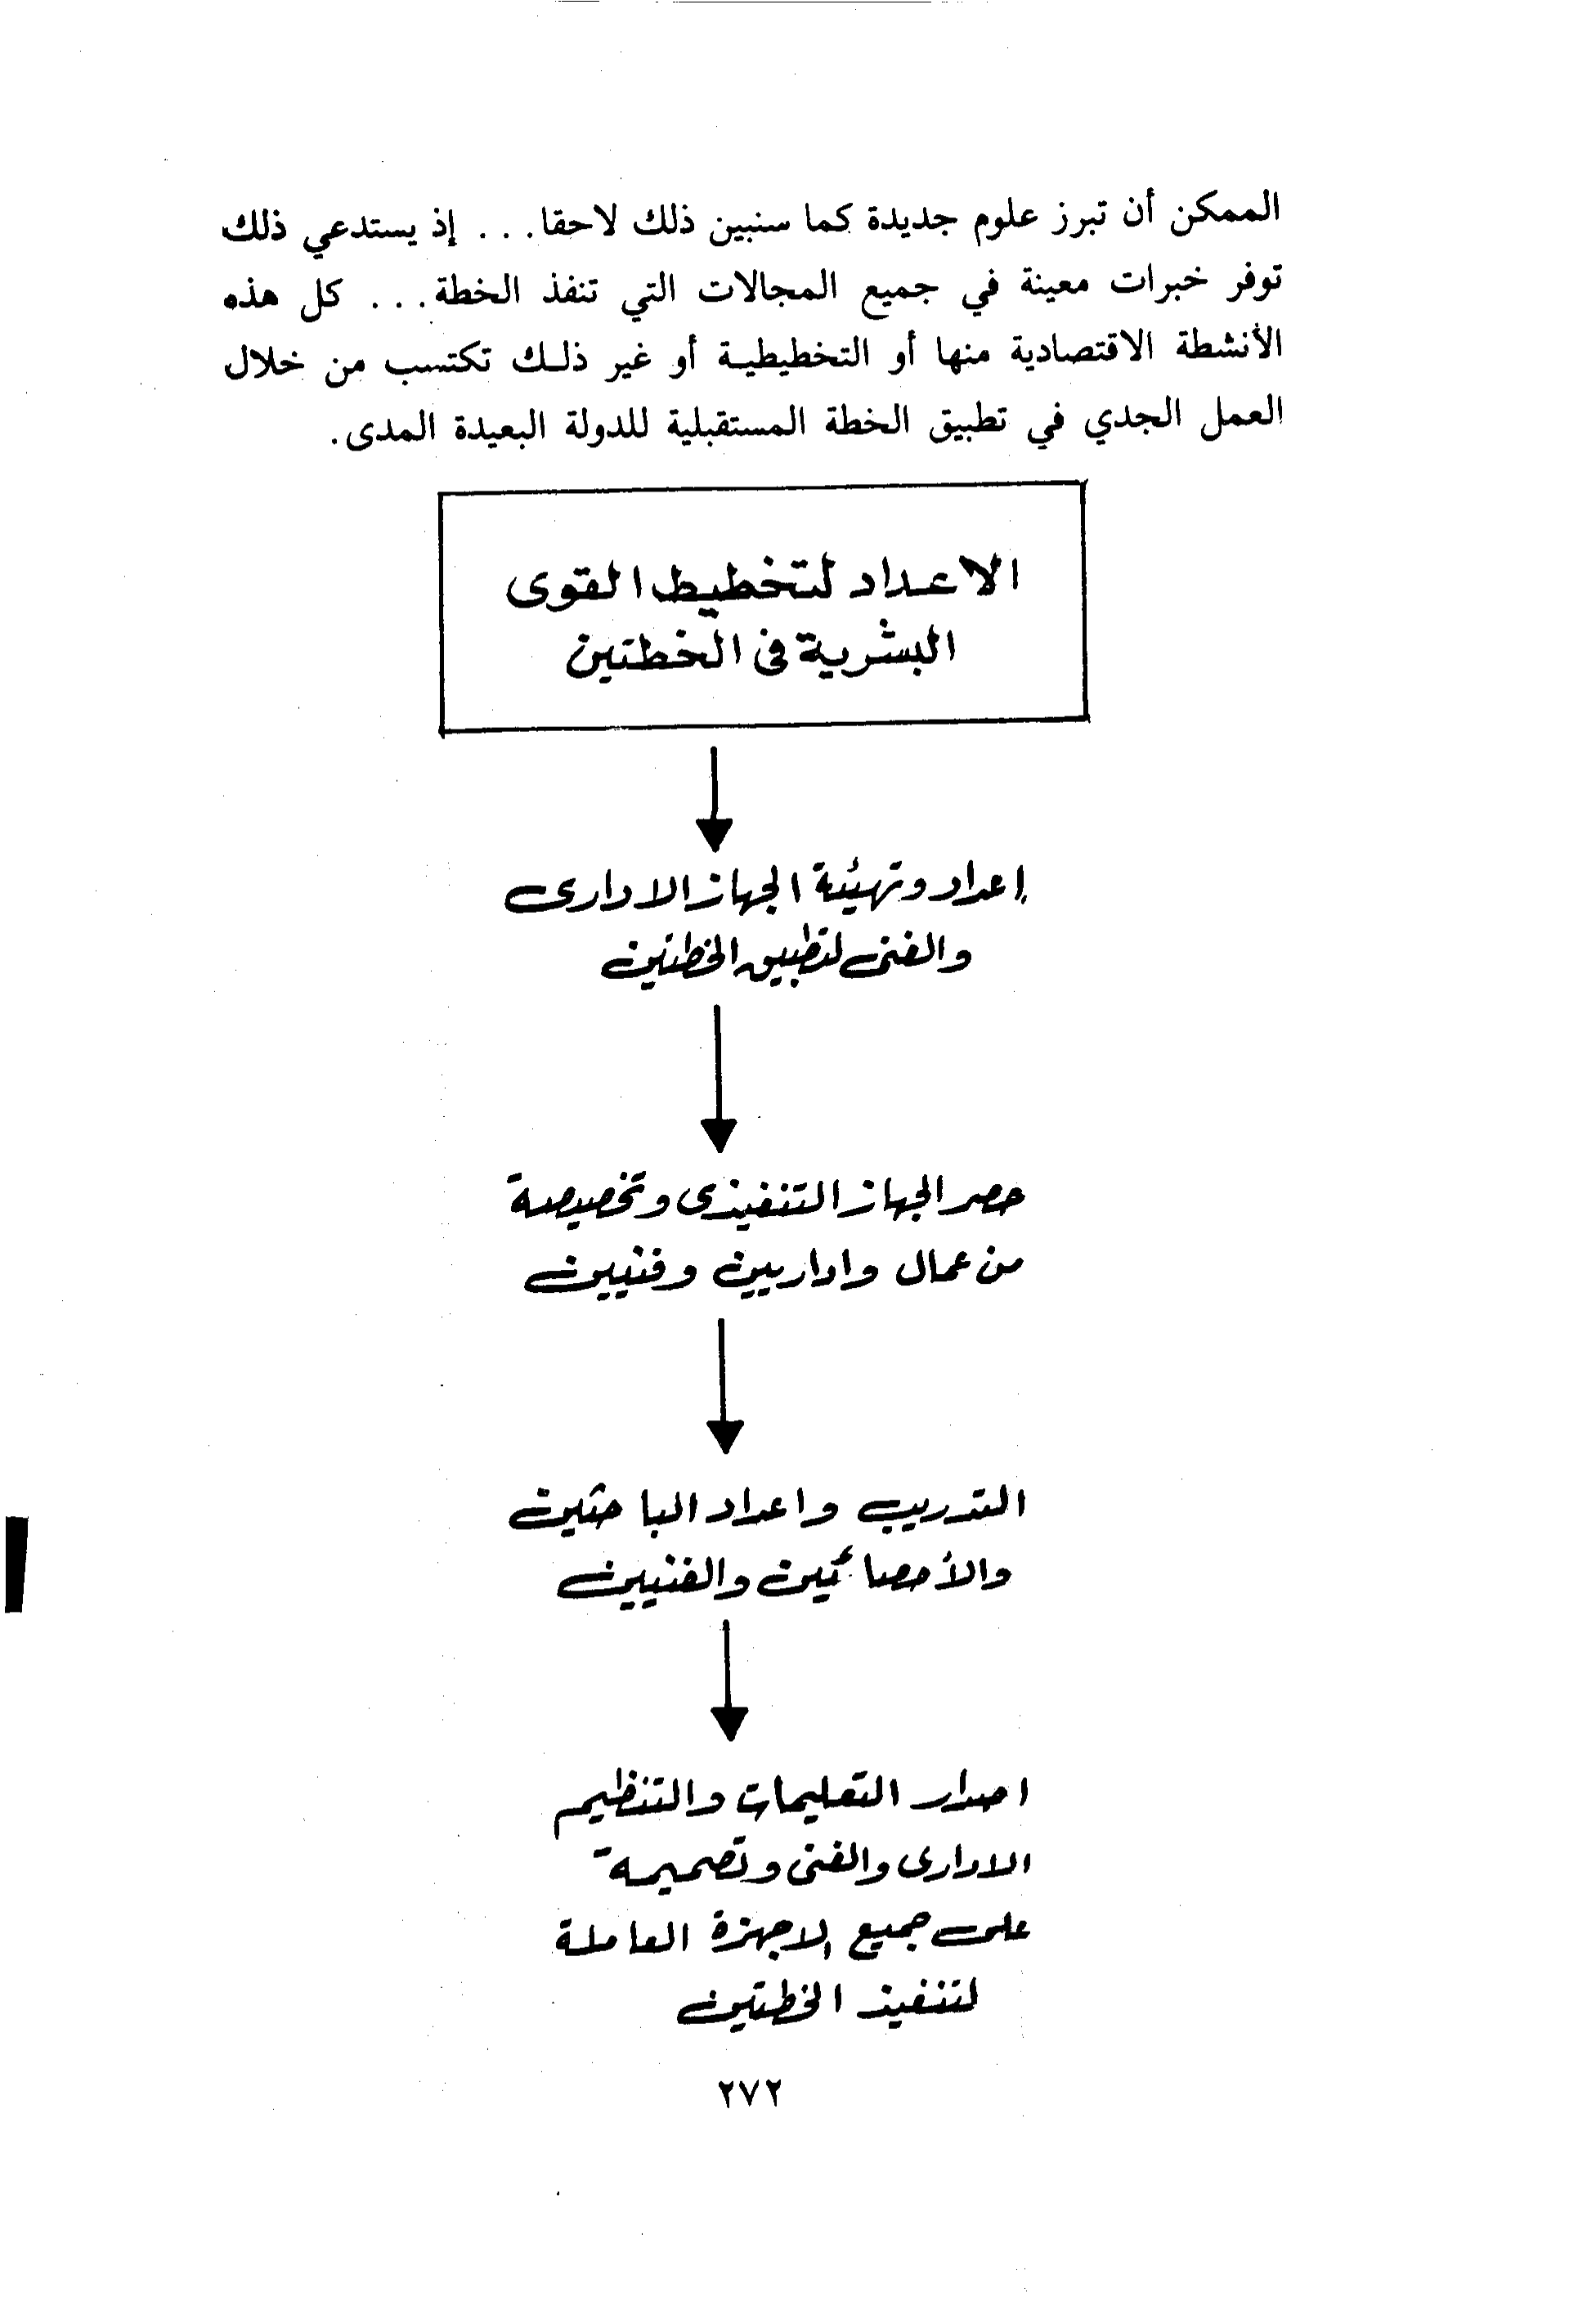 الممكن أن تبرز علوم جديدة كما سنبين ذلك لاحقا... إذ يستدعي ذلك
توفر خبرات معينة في جميع المجالات التي تنفذ الخطة... كل هذه
الأنشطة الاقتصادية منها أو التخطيطيـة أو غير ذلـك تكتسب من خلال
العمل الجدي في تطبيق الخطة المستقبلية للدولة البعيدة المدى.
الاعداد لتخطيط القوى
البشرية فى الخطتين
إعداد وتهيئة الجهاز الادارى
والفنى لتطبيق الخطتين
حصر الجهاز التنفيذى وتخصيصة
من عمال واداريين وفنيين
التدريب واعداد الباحثين
والأحصائين والفنيين
اصدار التعليمات والتنظيم
الادارى والفنى وتصميمة
على جميع الاجهزة العاملة
لتنفيذ الخطتين
٢٧٢